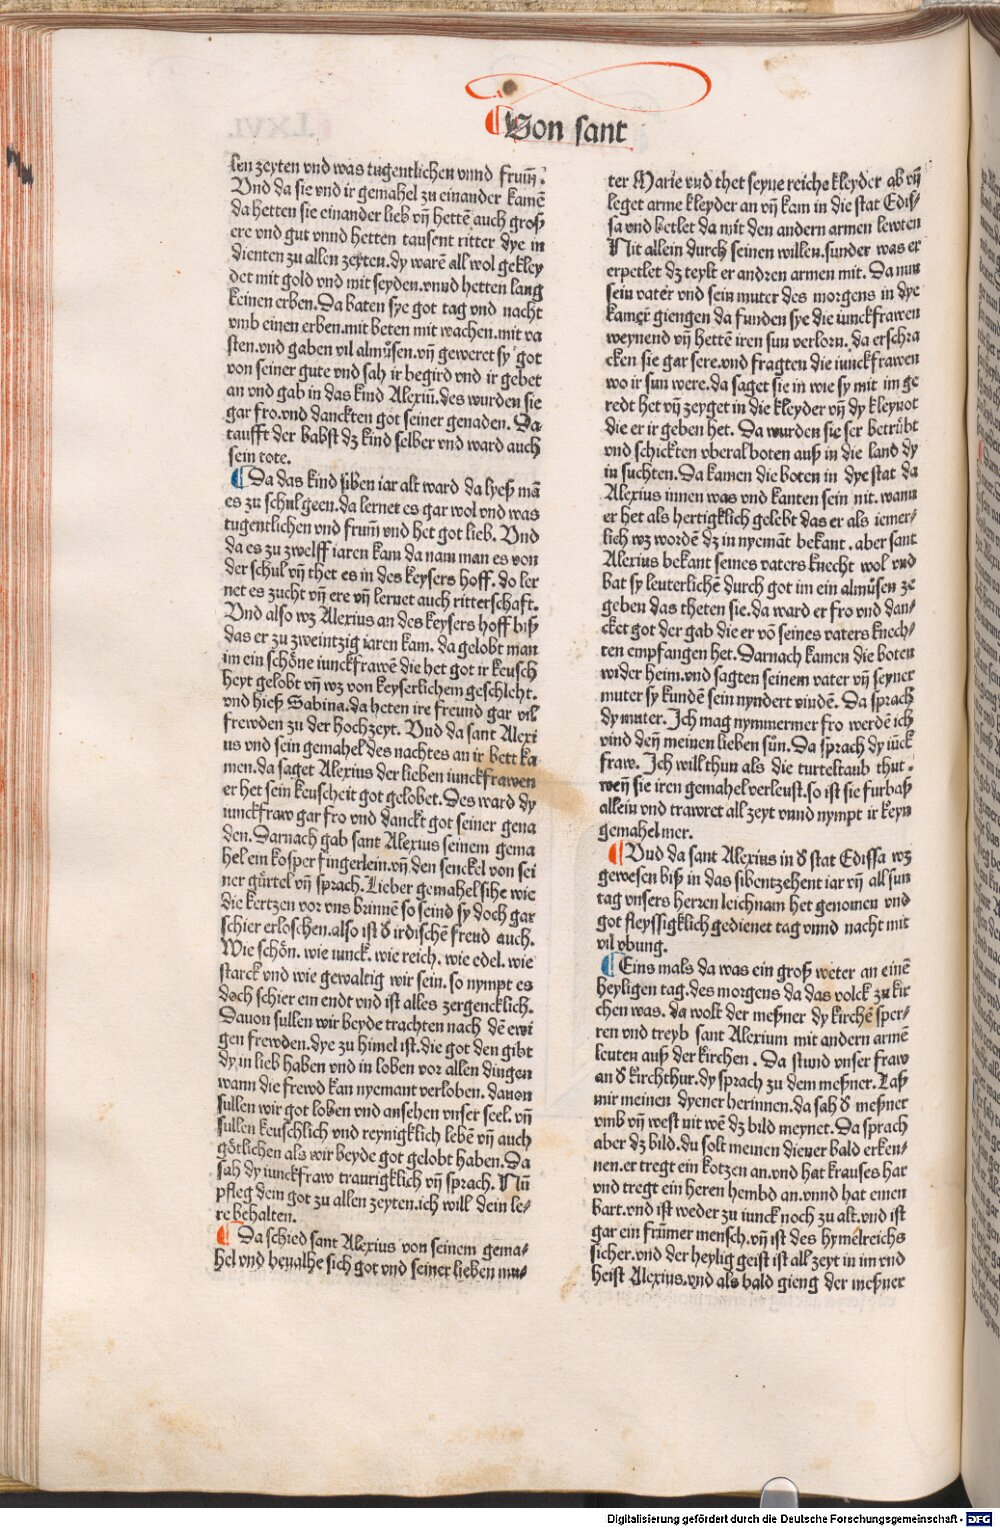 Von sant
len zeyten vnd was tugentlichen vnnd frum̃.
Vnd da sie vnd ir gemahel zu einander kamẽ
da hetten sie einander lieb vñ hettẽ auch groß
ere vnd gut vnnd hetten tausent ritter dye in
dienten zu allen zeyten. dy warẽ all wol gekley
det mit gold vnd mit seyden. vnnd hetten lang
keinen erben. Da baten sye got tag vnd nacht
vmb einen erben. mit beten mit wachen. mit va
sten. vnd gaben vil almůsen. vñ geweret sy got
von seiner gute vnd sah ir begird vnd ir gebet
an vnd gab in das kind Alexiũ. des wurden sie
gar fro. vnd danckten got seiner genaden. Da
taufft der babst dz kind selber vnd ward auch
sein tote.
Da das kind siben iar alt ward da hyeß mã
es zu schul geen. da lernet es gar wol vnd was
tugentlichen vnd frum̃ vnd het got lieb. Vnd
da es zu zwelff iaren kam da nam man es von
der schul vñ thet es in des keysers hoff. do ler
net es zucht vñ ere vñ lernet auch ritterschaft.
Vnd also wz Alexius an des keysers hoff biß
das er zu zweintzig iaren kam. da gelobt man
im ein schöne iunckfrawẽ die het got ir keusch
heyt gelobt vñ wz von keyserlichem geschlecht.
vnd hieß Sabina. da heten ire freund gar vil
frewden zu der hochzeyt. Vnd da sant Alexi
us vnd sein gemahel des nachtes an ir bett ka
men. da saget Alexius der lieben iunckfrawen
er het sein keuscheit got gelobet. Des ward dy
iunckfraw gar fro vnd danckt got seiner gena
den. Darnach gab sant Alexius seinem gema
hel ein kosper fingerlein. vñ den senckel von sei
ner gürtel vñ sprach. Lieber gemahel sihe wie
die kertzen vor vns brinnẽ so seind sy doch gar
schier erloschen. also ist d̕ irdischẽ freud auch.
Wie schön. wie iunck. wie reich. wie edel. wie
starck vnd wie gewaltig wir sein. so nympt es
doch schier ein endt vnd ist alles zergencklich.
Dauon sullen wir beyde trachten nach dẽ ewi
gen frewden. dye zu himel ist. die got den gibt
dy in lieb haben vnd in loben vor allen dingen
wann die frewd kan nyemant verloben. dauon
sullen wir got loben vnd ansehen vnser seel. vñ
sullen keuschlich vnd reynigklich lebẽ vñ auch
götlichen als wir beyde got gelobt haben. Da
sah dy iunckfraw traurigklich vñ sprach. Nũ
pfleg dein got zu allen zeyten. ich will dein le⸗
re behalten.
Da schied sant Alexius von seinem gema⸗
hel vnd beualhe sich got vnd seiner lieben mu⸗
ter Marie vnd thet seyne reiche kleyder ab vñ
leget arme kleyder an vñ kam in die stat Edis⸗
sa vnd betlet da mit den andern armen lewten
Nit allein durch seinen willen. sunder was er
erpetlet dz teylt er andren armen mit. Da nun
sein vater vnd sein muter des morgens in dye
kamer̃ giengen da funden sye die iunckfrawen
weynend vñ hettẽ iren sun verlorn. da erschra
cken sie gar sere. vnd fragten die iunckfrawen
wo ir sun were. da saget sie in wie sy mit im ge
redt het vñ zeyget in die kleyder vñ dy kleynot
die er ir geben het. Da wurden sie ser betrübt
vnd schickten vberal boten auß in die land dy
in suchten. Da kamen die boten in dye stat da
Alexius innen was vnd kanten sein nit. wann
er het als hertigklich gelebt das er als iemer⸗
lich wz wordẽ dz in nyemãt bekant. aber sant
Alexius bekant seines vaters knecht wol vnd
bat sy leuterlichẽ durch got im ein almůsen ze
geben das theten sie. da ward er fro vnd dan⸗
cket got der gab die er võ seines vaters knech⸗
ten empfangen het. Darnach kamen die boten
wider heim. vnd sagten seinem vater vñ seyner
muter sy kundẽ sein nyndert vindẽ. Da sprach
dy muter. Ich mag nymmermer fro werdẽ ich
vind deñ meinen lieben sün. Da sprach dy iũck
fraw. Ich will thun als die turteltaub thut.
weñ sie iren gemahel verleust. so ist sie furbaß
allein vnd trawret all zeyt vnnd nympt ir keyn
gemahel mer.
Vnd da sant Alexius in d̕ stat Edissa wz
gewesen biß in das sibentzehent iar vñ all sun
tag vnsers herren leichnam het genomen vnd
got fleyssigklich gedienet tag vnnd nacht mit
vil vbung.
Eins mals da was ein groß weter an einẽ
heyligen tag. des morgens da das volck zu kir
chen was. da wolt der meßner dy kirchẽ sper⸗
ren vnd treyb sant Alexium mit andern armẽ
leuten auß der kirchen. Da stund vnser fraw
an d̕ kirchthur. dy sprach zu dem meßner. Laß
mir meinen dyener herinnen. da sah d̕ meßner
vmb vñ west nit wẽ dz bild meynet. Da sprach
aber dz bild. du solt meinen diener bald erken⸗
nen. er tregt ein kotzen an. vnd hat krauses har
vnd tregt ein heren hembd an. vnnd hat einen
bart. vnd ist weder zu iunck noch zu alt. vnd ist
gar ein frümer mensch. vñ ist des hymelreichs
sicher. vnd der heylig geist ist all zeyt in im vnd
heist Alexius. vnd als bald gieng der meßner
Digitalisierung gefördert durch die Deutsche Forschungsgemeinschaft - DFG